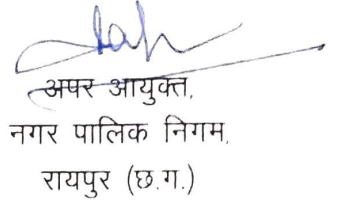 अपर आयुक्त,
नगर पालिक निगम,
रायपुर (छ.ग.)